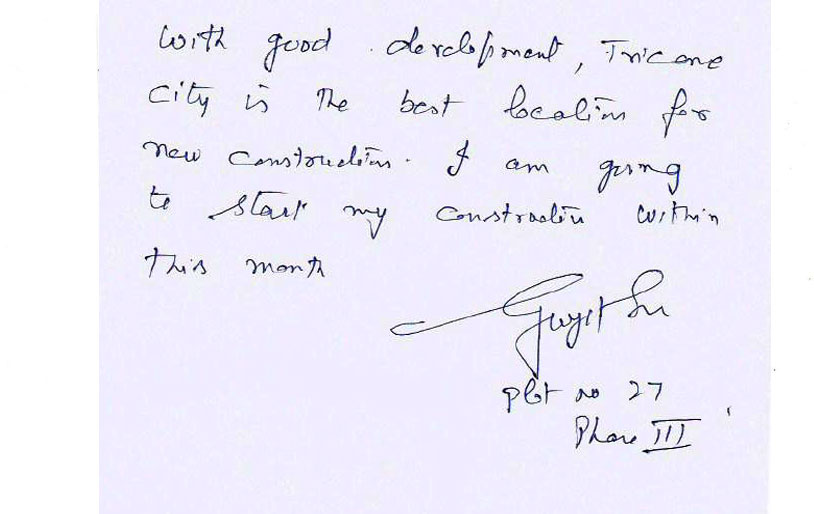 With good development, Tricone
City is the best location for
new construction. I am going
to start my construction within
this month
Plot no 27
Phase III